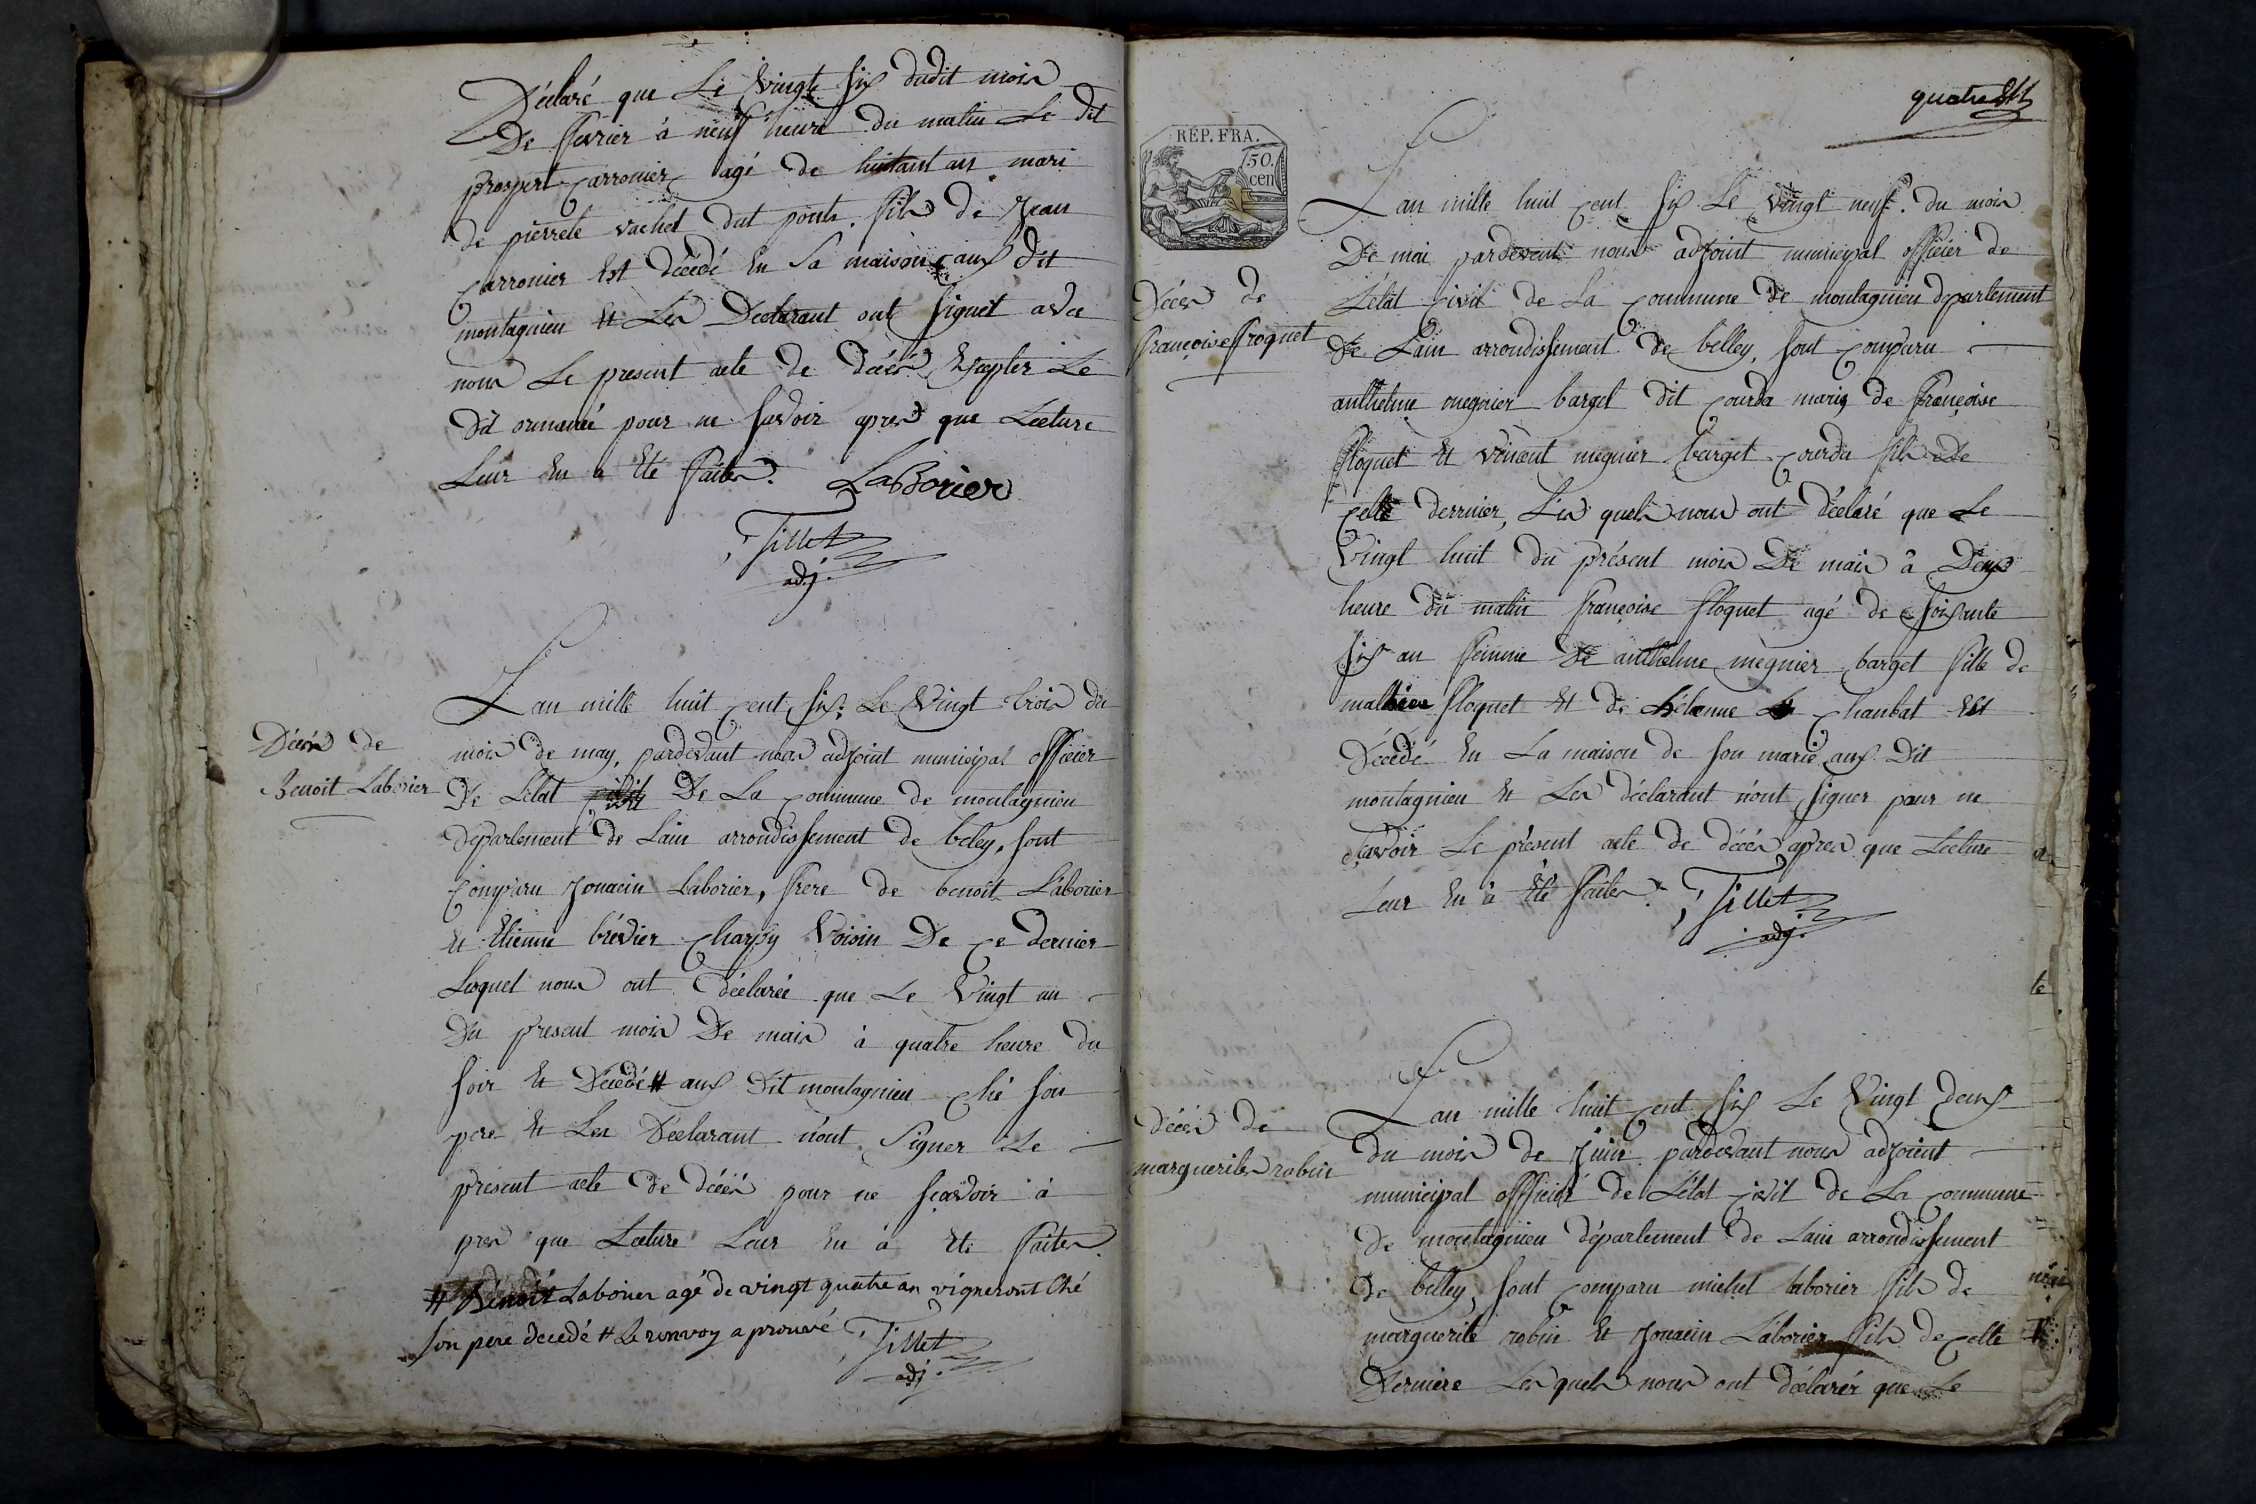 Déclaré que Le Vingt six dudit mois
De fevrier à neuf heure du matin Le dit
prospert carronier agé de huitant an mari
de pierrete vachet dut ponts fils de Jean
carronier Est décédé En Sa maison aux dit
montagnieu Et Les Declarant ont signet avec
nous Le present acte de décés Excepter Le
dit pour ne savoir apres que Lecture
Leur En a Eté faites. Laborier
Tillet
adj.
Décés de
Benoit Laborier
Lan mille huit cent six Le Vingt trois du
mois de may, pardevant nous adjoint municipal officier
De Létat civil De La commune de montagnieu
departement de Lain arrondissement de beley, sont
comparu Jouacin Laborier, frere de benoit Laborier
Et Etienne brévier charpy Voisin De ce dernier
Lesquel nous ont déclarée que Le Vingt un
Du present mois De mais à quatre heure du
soir Et Décédé # aux Dit montagnieu ché son
pere Et Les Déclarant n'ont Signer Le
présent acte de décés pour ne sçavoir à
pres que Lecture Leur En à Eté faites.
# Bénoit Laborier agé de vingt quatre an vigneront Ché
son pere decedé # Le renvoy aprouvé Tillet
adj.
quatre
RÉP. FRA.
50.
cen
Décés de
françoise froquet
Lan mille huit cent six Le vingt neuf du mois
De mai pardevent nous adjoint municipal officier de
Létat civil de La commune de montagnieu département
De Lain arrondissement de belley, sont comparu
anthelme megnier barget dit courda maris de françoise
floquet Et vincent megnier barget courda fils de
cette dernier, Les quels nous ont déclaré que Le
Vingt huit du présent mois De mais à Deux
heure du matin françoise floquet agé de soixante
six an femme de anthelme megnier barget fille de
mathieu floquet Et de hélenne chanbat Est
Décédé En La maison de son marie aux Dit
montagnieu Et Les déclarant n'ont signer pour ne
sçavoir Le présent acte de décés apres que Lecture
Leur En à Eté faites. Tillet
adj.
décés de
marguerites robin
Lan mille huit cent six Le Vingt deux
du mois de Juin pardevant nous adjoint
municipal officier de Létat civil de La commune
De montagnieu département de Lain arrondissement
De belley, sont comparu michel laborier fils de
marguerite robin Et Jouacin Laborier fils de cette
Derniere Les quels nous ont déclarér que Le